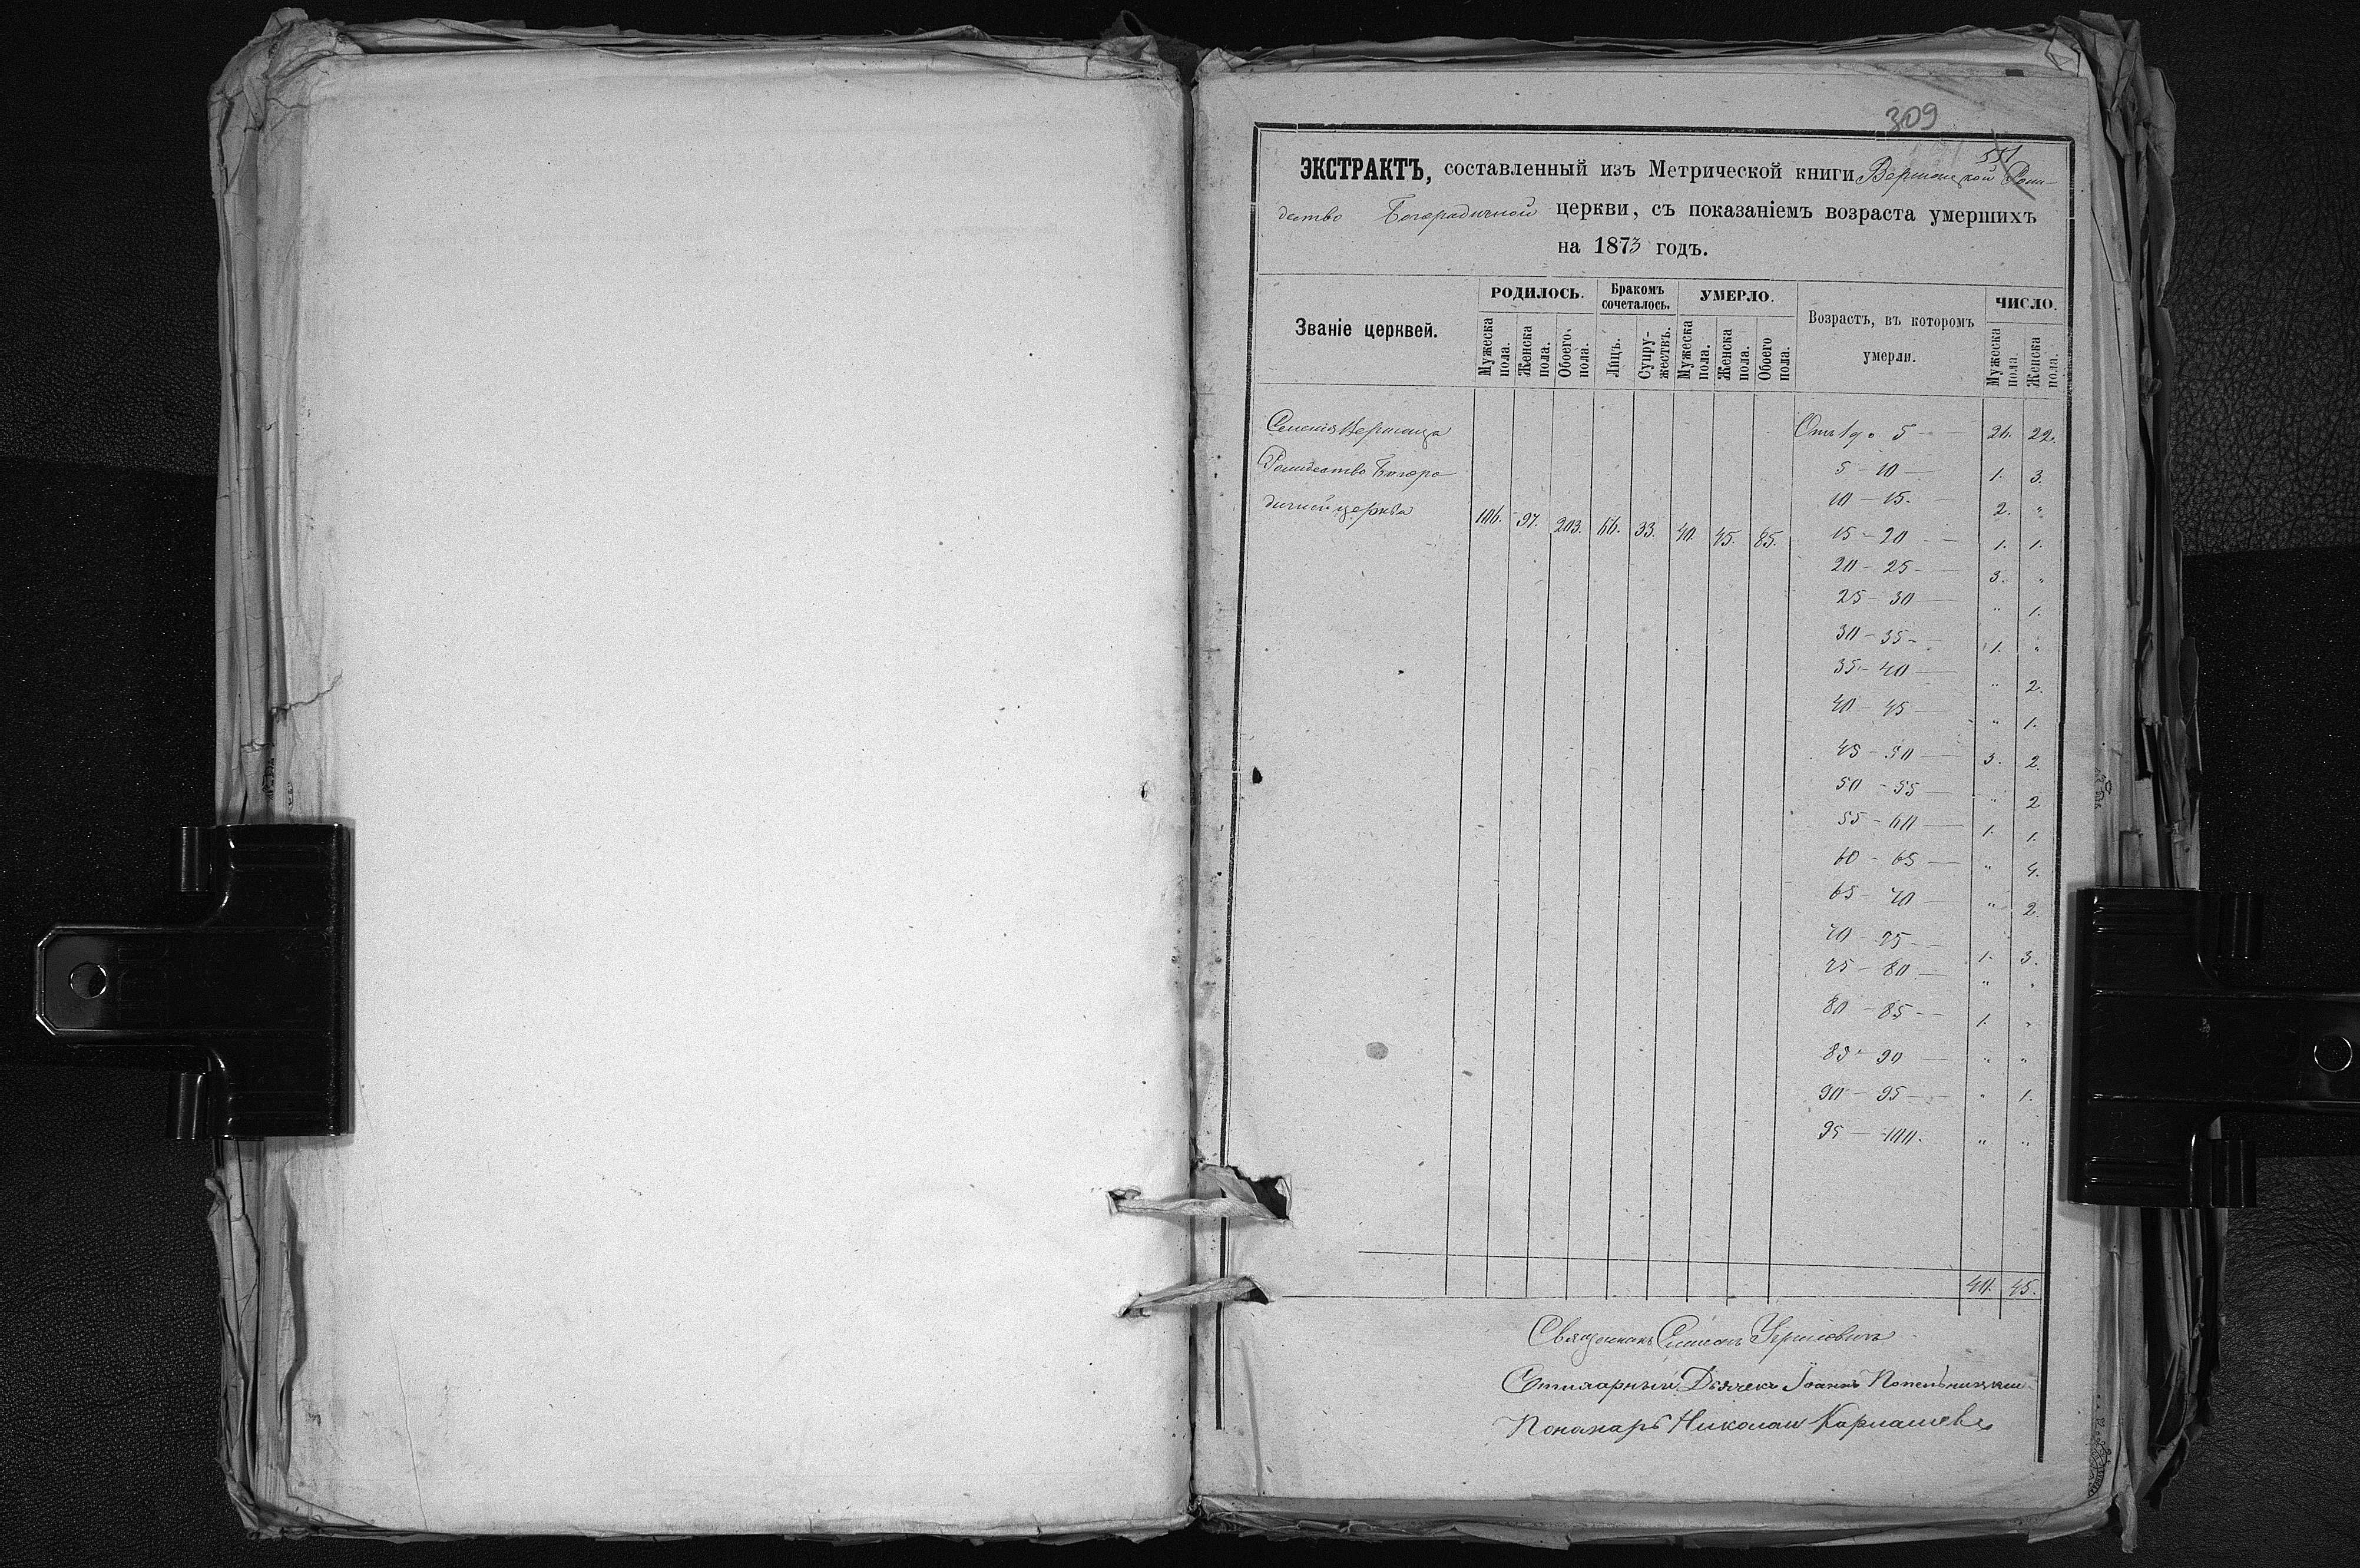 309
551
ЭКСТРАКТЪ, составленный изъ Метрической книги Вершацкой Рож-
дество Богородичной церкви, съ показаніемъ возраста умершихъ
на 1873 годъ.
Званіе церквей.
РОДИЛОСЬ.
Мужеска пола.
Женска пола.
Обоего пола.
Бракомъ сочеталось.
Лицъ.
Супру-жествъ.
УМЕРЛО.
Мужеска пола.
Женска пола.
Обоего пола.
Возрастъ, въ которомъ
умерли.
ЧИСЛО.
Мужеска пола.
Женска пола.
Селенія Вершаца
Рождество Богоро
дичной церква
106. 97. 203. 66. 33. 40. 45. 85.
Отъ 1 до 5 — 26. 22.
5 — 10 — 1. 3.
10 — 15. — 2. "
15 — 20 — 1. 1.
20 — 25 — 3. "
25 — 30 — " 1.
30 — 35 — 1. "
35 — 40 — " 2.
40 — 45 — " 1.
45 — 50 — 3. 2.
50 — 55 — " 2
55 — 60 — 1. 1.
60 — 65 — " 4.
65 — 70 — " 2.
70 — 75 — 1. 3.
75 — 80 — " "
80 — 85 — 1. "
85 — 90 — " "
90 — 95 — " 1.
95 — 100. " "
40. 45.
Священникъ Симеонъ
Дьячекъ Іоаннъ Попельницкій
Пономарь Николай Карпашевъ